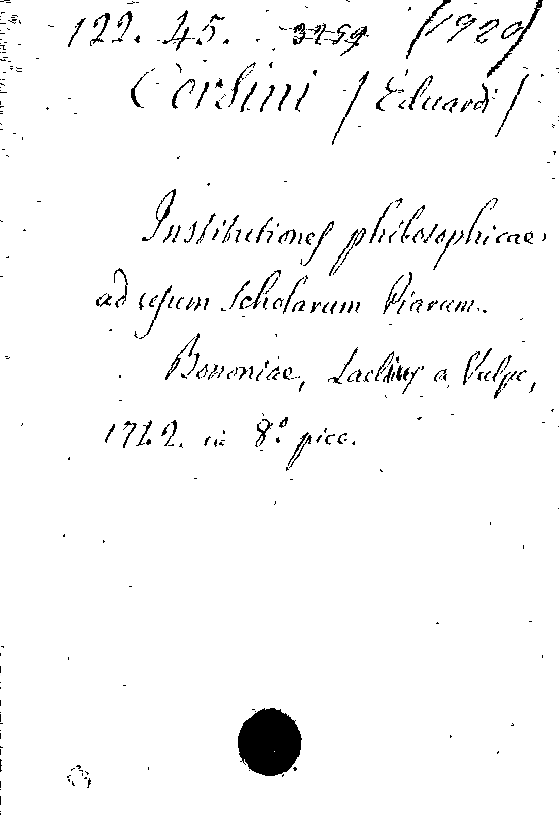 122. 45. 3259 (1929)
Corsini (Eduardi)
Institutiones philosophicae
ad usum Scholarum Piarum.
Bononiae, Laelius a Vulpe,
in 8° picc.